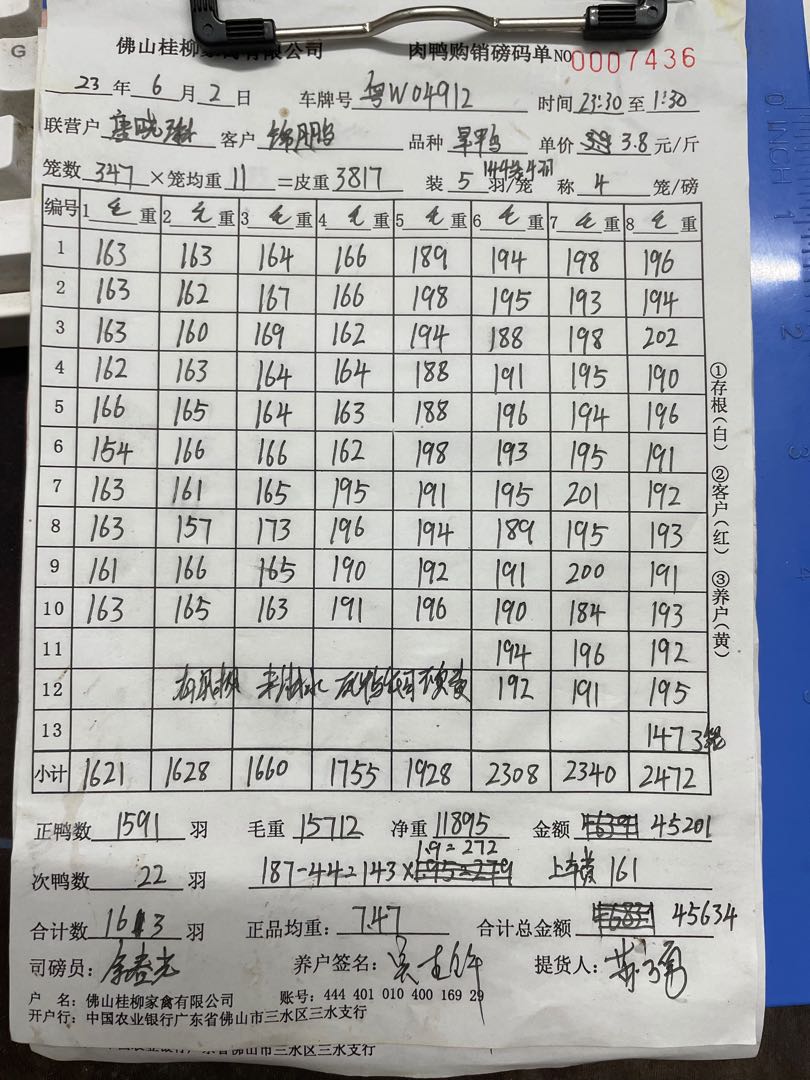 佛山桂柳家禽有限公司 肉鸭购销磅码单 NO 0007436
23 年 6 月 2 日 车牌号 粤W04912 时间 23:30 至 1:30
联营户 客户 锦鹏 品种 旱鸭 单价 3.8 元/斤
笼数 347 ×笼均重 11 =皮重 3817 装 5 羽/笼 称 4 笼/磅
编号 1 毛 重 2 毛 重 3 毛 重 4 毛 重 5 毛 重 6 毛 重 7 毛 重 8 毛 重
1 163 163 164 166 189 194 198 196
2 163 162 167 166 198 195 193 194
3 163 160 169 162 194 188 198 202
4 162 163 164 164 188 191 195 190
5 166 165 164 163 188 196 194 196
6 154 166 166 162 198 193 195 191
7 163 161 165 195 191 195 201 192
8 163 157 173 196 194 189 195 193
9 161 166 165 190 192 191 200 191
10 163 165 163 191 196 190 184 193
11 194 196 192
12 192 191 195
13 147 3笼
小计 1621 1628 1660 1755 1928 2308 2340 2472
正鸭数 1591 羽 毛重 15712 净重 11895 金额 45201
1.9=272
次鸭数 22 羽 187-44=143× 上车费 161
合计数 1613 羽 正品均重: 7.47 合计总金额 45634
司磅员: 养户签名: 提货人:
户 名: 佛山桂柳家禽有限公司 账号: 444 401 010 400 169 29
开户行: 中国农业银行广东省佛山市三水区三水支行
①存根(白) ②客户(红) ③养户(黄)